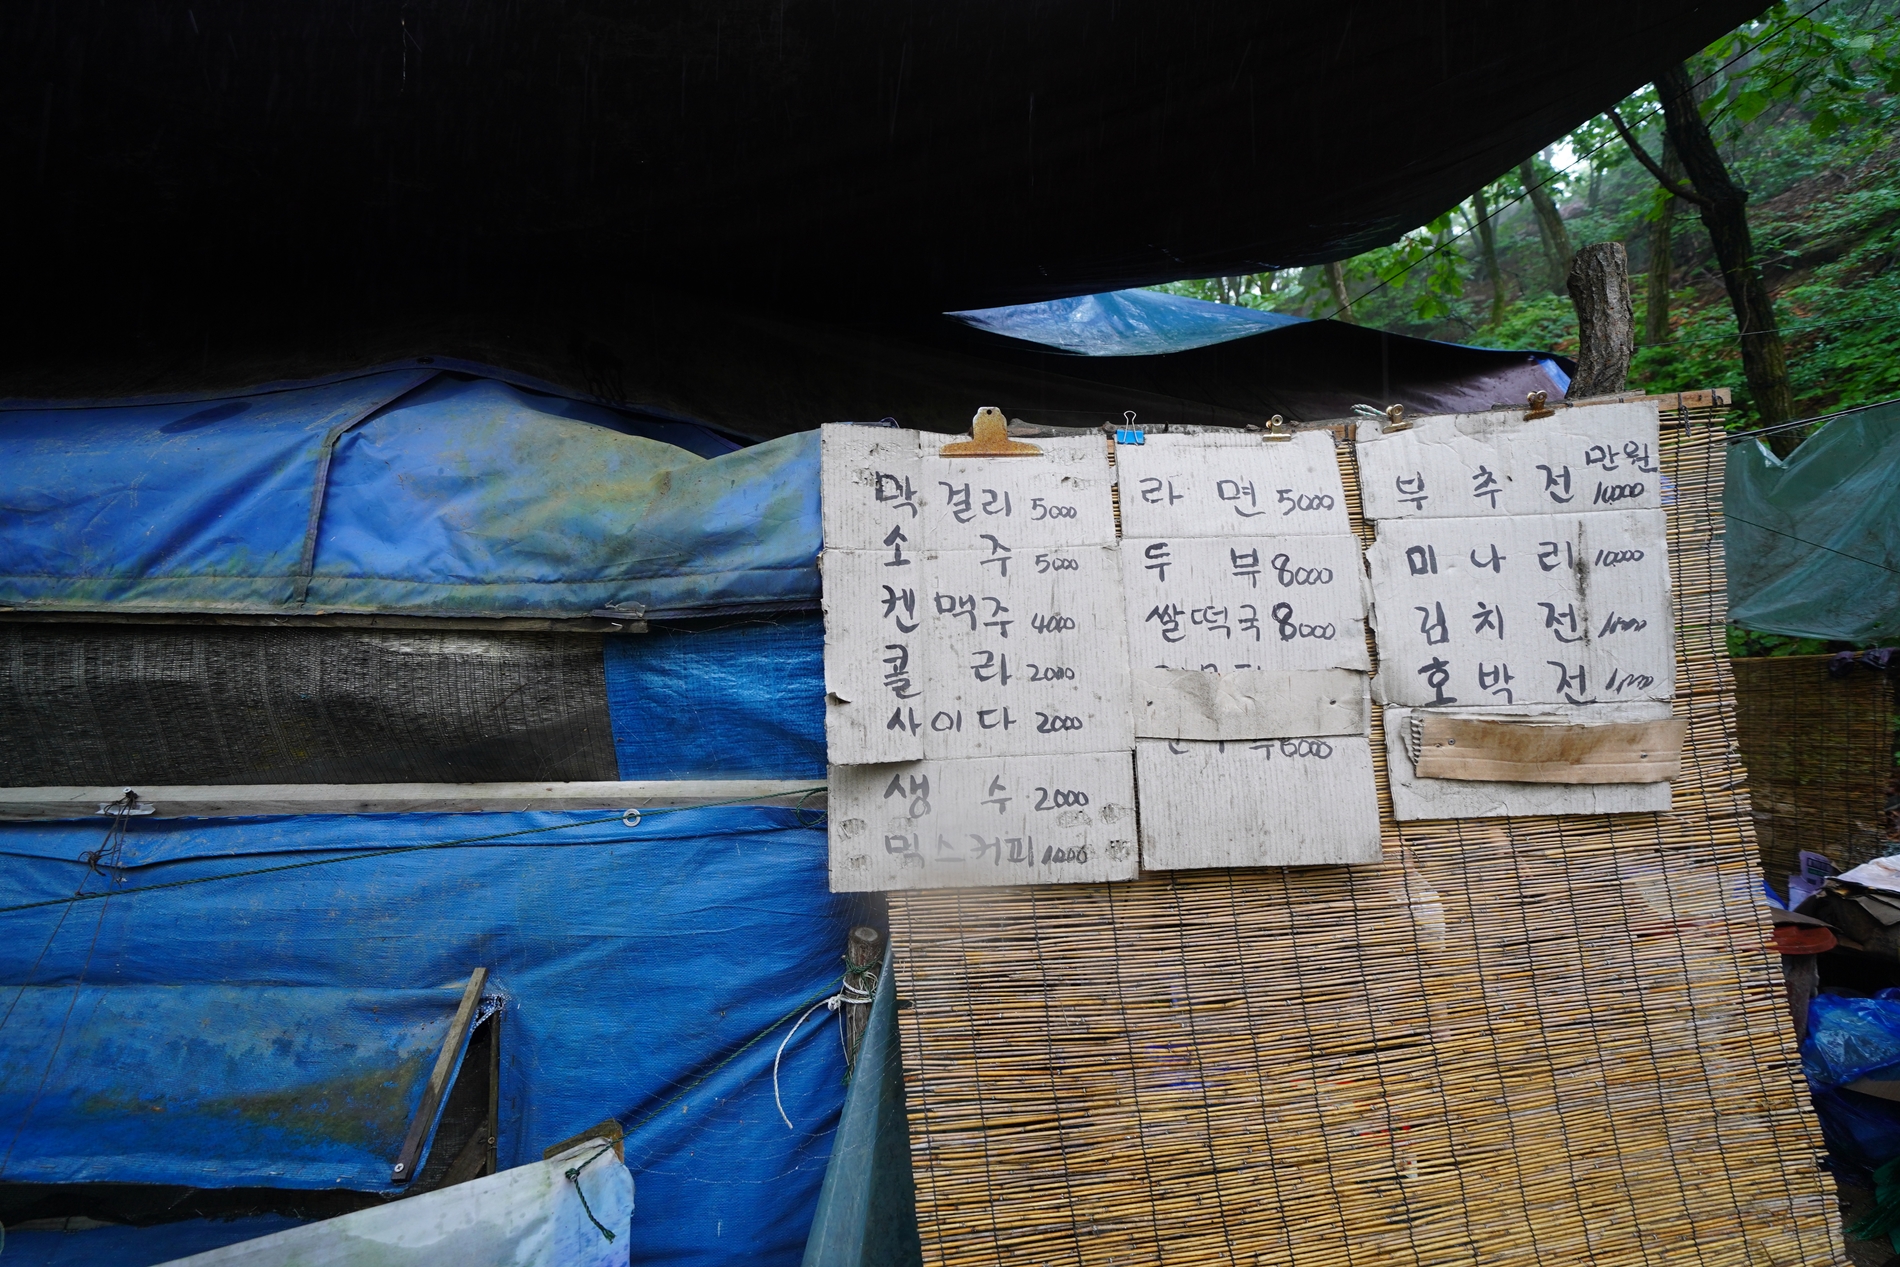 막걸리 5000
소주 5000
켄맥주 4000
콜라 2000
사이다 2000
생수 2000
믹스커피 1000
라면 5000
두부 8000
쌀떡국 8000
6000
만원
부추전 10000
미나리 10000
김치전
호박전